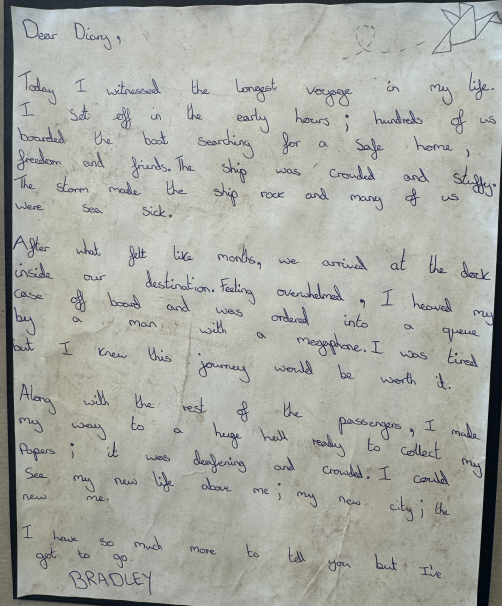 Dear Diary,
Today I witnessed the longest voyage in my life.
I set off in the early hours; hundreds of us
boarded the boat searching for a safe home,
freedom and friends. The ship was crowded and stuffy.
The storm made the ship rock and many of us
were sea sick.
After what felt like months, we arrived at the dock
inside our destination. Feeling overwhelmed, I heaved my
case off board and was ordered into a queue
by a man with a megaphone. I was tired
but I knew this journey would be worth it.
Along with the rest of the passengers, I made
my way to a huge hall ready to collect my
Papers; it was deafening and crowded. I could
see my new life above me; my new city; the
new me.
I have so much more to tell you but I've
got to go
BRADLEY